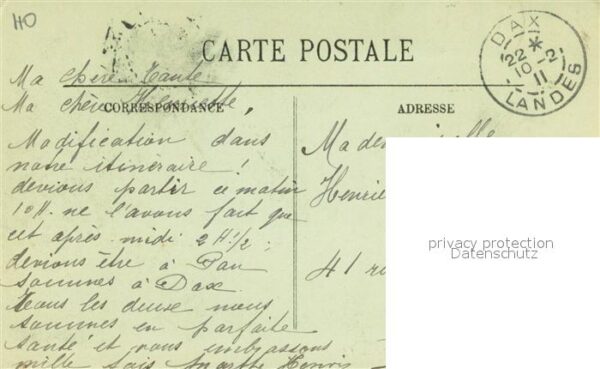 HO
CARTE POSTALE
DAX
22 *
10 - 2
11
LANDES
Ma chère Tante
Ma chère Henriette,
CORRESPONDANCE
ADRESSE
Modification dans
notre itinéraire !
devions partir ce matin
10 H. ne l'avons fait que
cet après midi 2 H 1/2 ;
devions être à Pau
sommes à Dax
Tous les deux nous
sommes en parfaite
santé et vous embrassons
mille fois Marthe Henri
Mademoiselle
Henrie
41 ru
privacy protection
Datenschutz